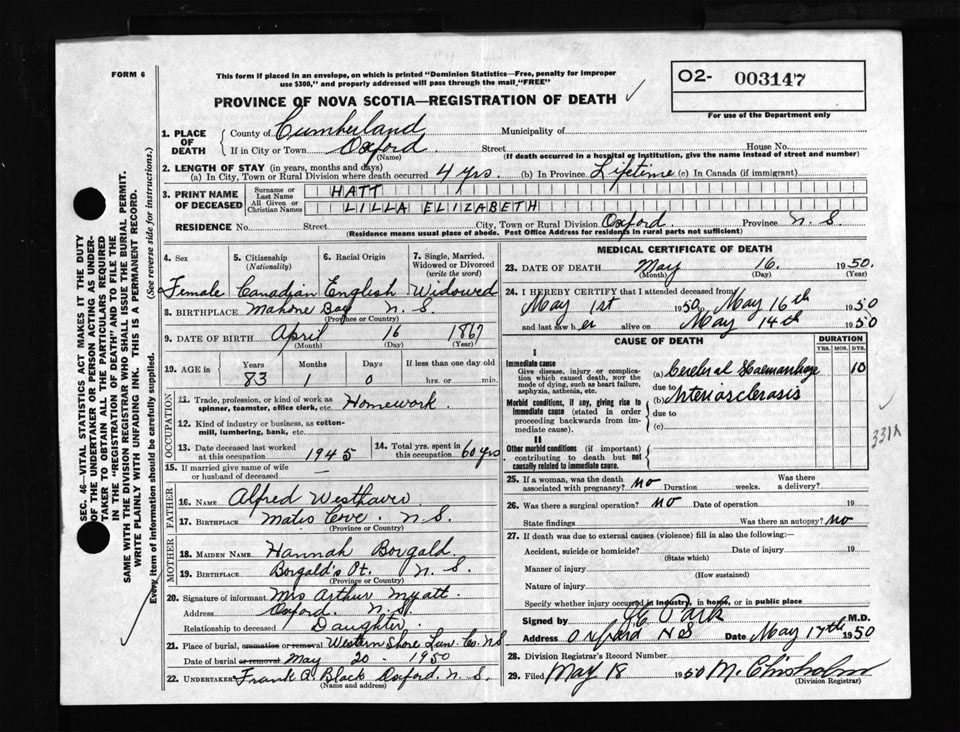 FORM 6
This form if placed in an envelope, on which is printed "Dominion Statistics—Free, penalty for improper
use $300," and properly addressed will pass through the mail "FREE"
O2- 003147
For use of the Department only
PROVINCE OF NOVA SCOTIA—REGISTRATION OF DEATH
SEC. 46—VITAL STATISTICS ACT MAKES IT THE DUTY
OF THE UNDERTAKER OR PERSON ACTING AS UNDER-
TAKER TO OBTAIN ALL THE PARTICULARS REQUIRED
IN THE "REGISTRATION OF DEATH" AND TO FILE THE
SAME WITH THE DIVISION REGISTRAR WHO SHALL ISSUE THE BURIAL PERMIT.
WRITE PLAINLY WITH UNFADING INK. THIS IS A PERMANENT RECORD.
Every item of information should be carefully supplied. (See reverse side for instructions.)
1. PLACE OF DEATH County of Cumberland Municipality of
If in City or Town Oxford Street House No.
(Name) (If death occurred in a hospital or institution, give the name instead of street and number)
2. LENGTH OF STAY (in years, months and days)
(a) In City, Town or Rural Division where death occurred 4 yrs. (b) In Province Lifetime (c) In Canada (if immigrant)
3. PRINT NAME OF DECEASED Surname or Last Name HATT
All Given or Christian Names LILLA ELIZABETH
RESIDENCE No. Street City, Town or Rural Division Oxford Province N. S
(Residence means usual place of abode. Post Office Address for residents in rural parts not sufficient)
4. Sex 5. Citizenship (Nationality) 6. Racial Origin 7. Single, Married, Widowed or Divorced (write the word)
Female Canadian English Widowed
8. BIRTHPLACE Mahone Bay N. S.
(Province or Country)
9. DATE OF BIRTH April 16 1867
(Month) (Day) (Year)
19. AGE in Years Months Days If less than one day old
83 1 0 hrs. or min.
OCCUPATION
11. Trade, profession, or kind of work as spinner, teamster, office clerk, etc. Homework.
12. Kind of industry or business, as cotton-mill, lumbering, bank, etc.
13. Date deceased last worked at this occupation 1945 14. Total yrs. spent in this occupation 60 yrs
15. If married give name of wife or husband of deceased —
FATHER
16. NAME Alfred Westhaver
17. BIRTHPLACE Cove. N. S.
(Province or Country)
MOTHER
18. MAIDEN NAME Hannah Borgald.
19. BIRTHPLACE Borgald's Pt. N. S.
(Province or Country)
20. Signature of informant Mrs Arthur Myatt.
Address Oxford. N. S.
Relationship to deceased Daughter.
21. Place of burial, cremation or removal Western Shore Lun. Co. N S
Date of burial or removal May 20 - 1950
22. UNDERTAKER Frank A. Black Oxford. N. S.
(Name and address)
MEDICAL CERTIFICATE OF DEATH
23. DATE OF DEATH May 16. 1950.
(Month) (Day) (Year)
24. I HEREBY CERTIFY that I attended deceased from
May 1st 1950, May 16th 1950
and last saw her alive on May 14th 1950
CAUSE OF DEATH DURATION
YRS. MOS. DYS.
I
Immediate cause
Give disease, injury or complica-
tion which caused death, not the
mode of dying, such as heart failure,
asphyxia, asthenia, etc.
(a) Cerebral Haemorrhage 10
due to
Morbid conditions, if any, giving rise to
immediate cause (stated in order
proceeding backwards from im-
mediate cause).
(b) Arteriosclerosis
due to
(c)
331A
II
Other morbid conditions (if important)
contributing to death but not
causally related to immediate cause.
25. If a woman, was the death associated with pregnancy? no Duration weeks. Was there a delivery?
26. Was there a surgical operation? no Date of operation 19
State findings Was there an autopsy? no
27. If death was due to external causes (violence) fill in also the following:—
Accident, suicide or homicide? Date of injury 19
(State which)
Manner of injury
(How sustained)
Nature of injury
Specify whether injury occurred in industry, in home, or in public place
Signed by Park M.D.
Address Oxford N S Date May 17th 1950
28. Division Registrar's Record Number
29. Filed May 18 1950 M. Chisholm
(Division Registrar)